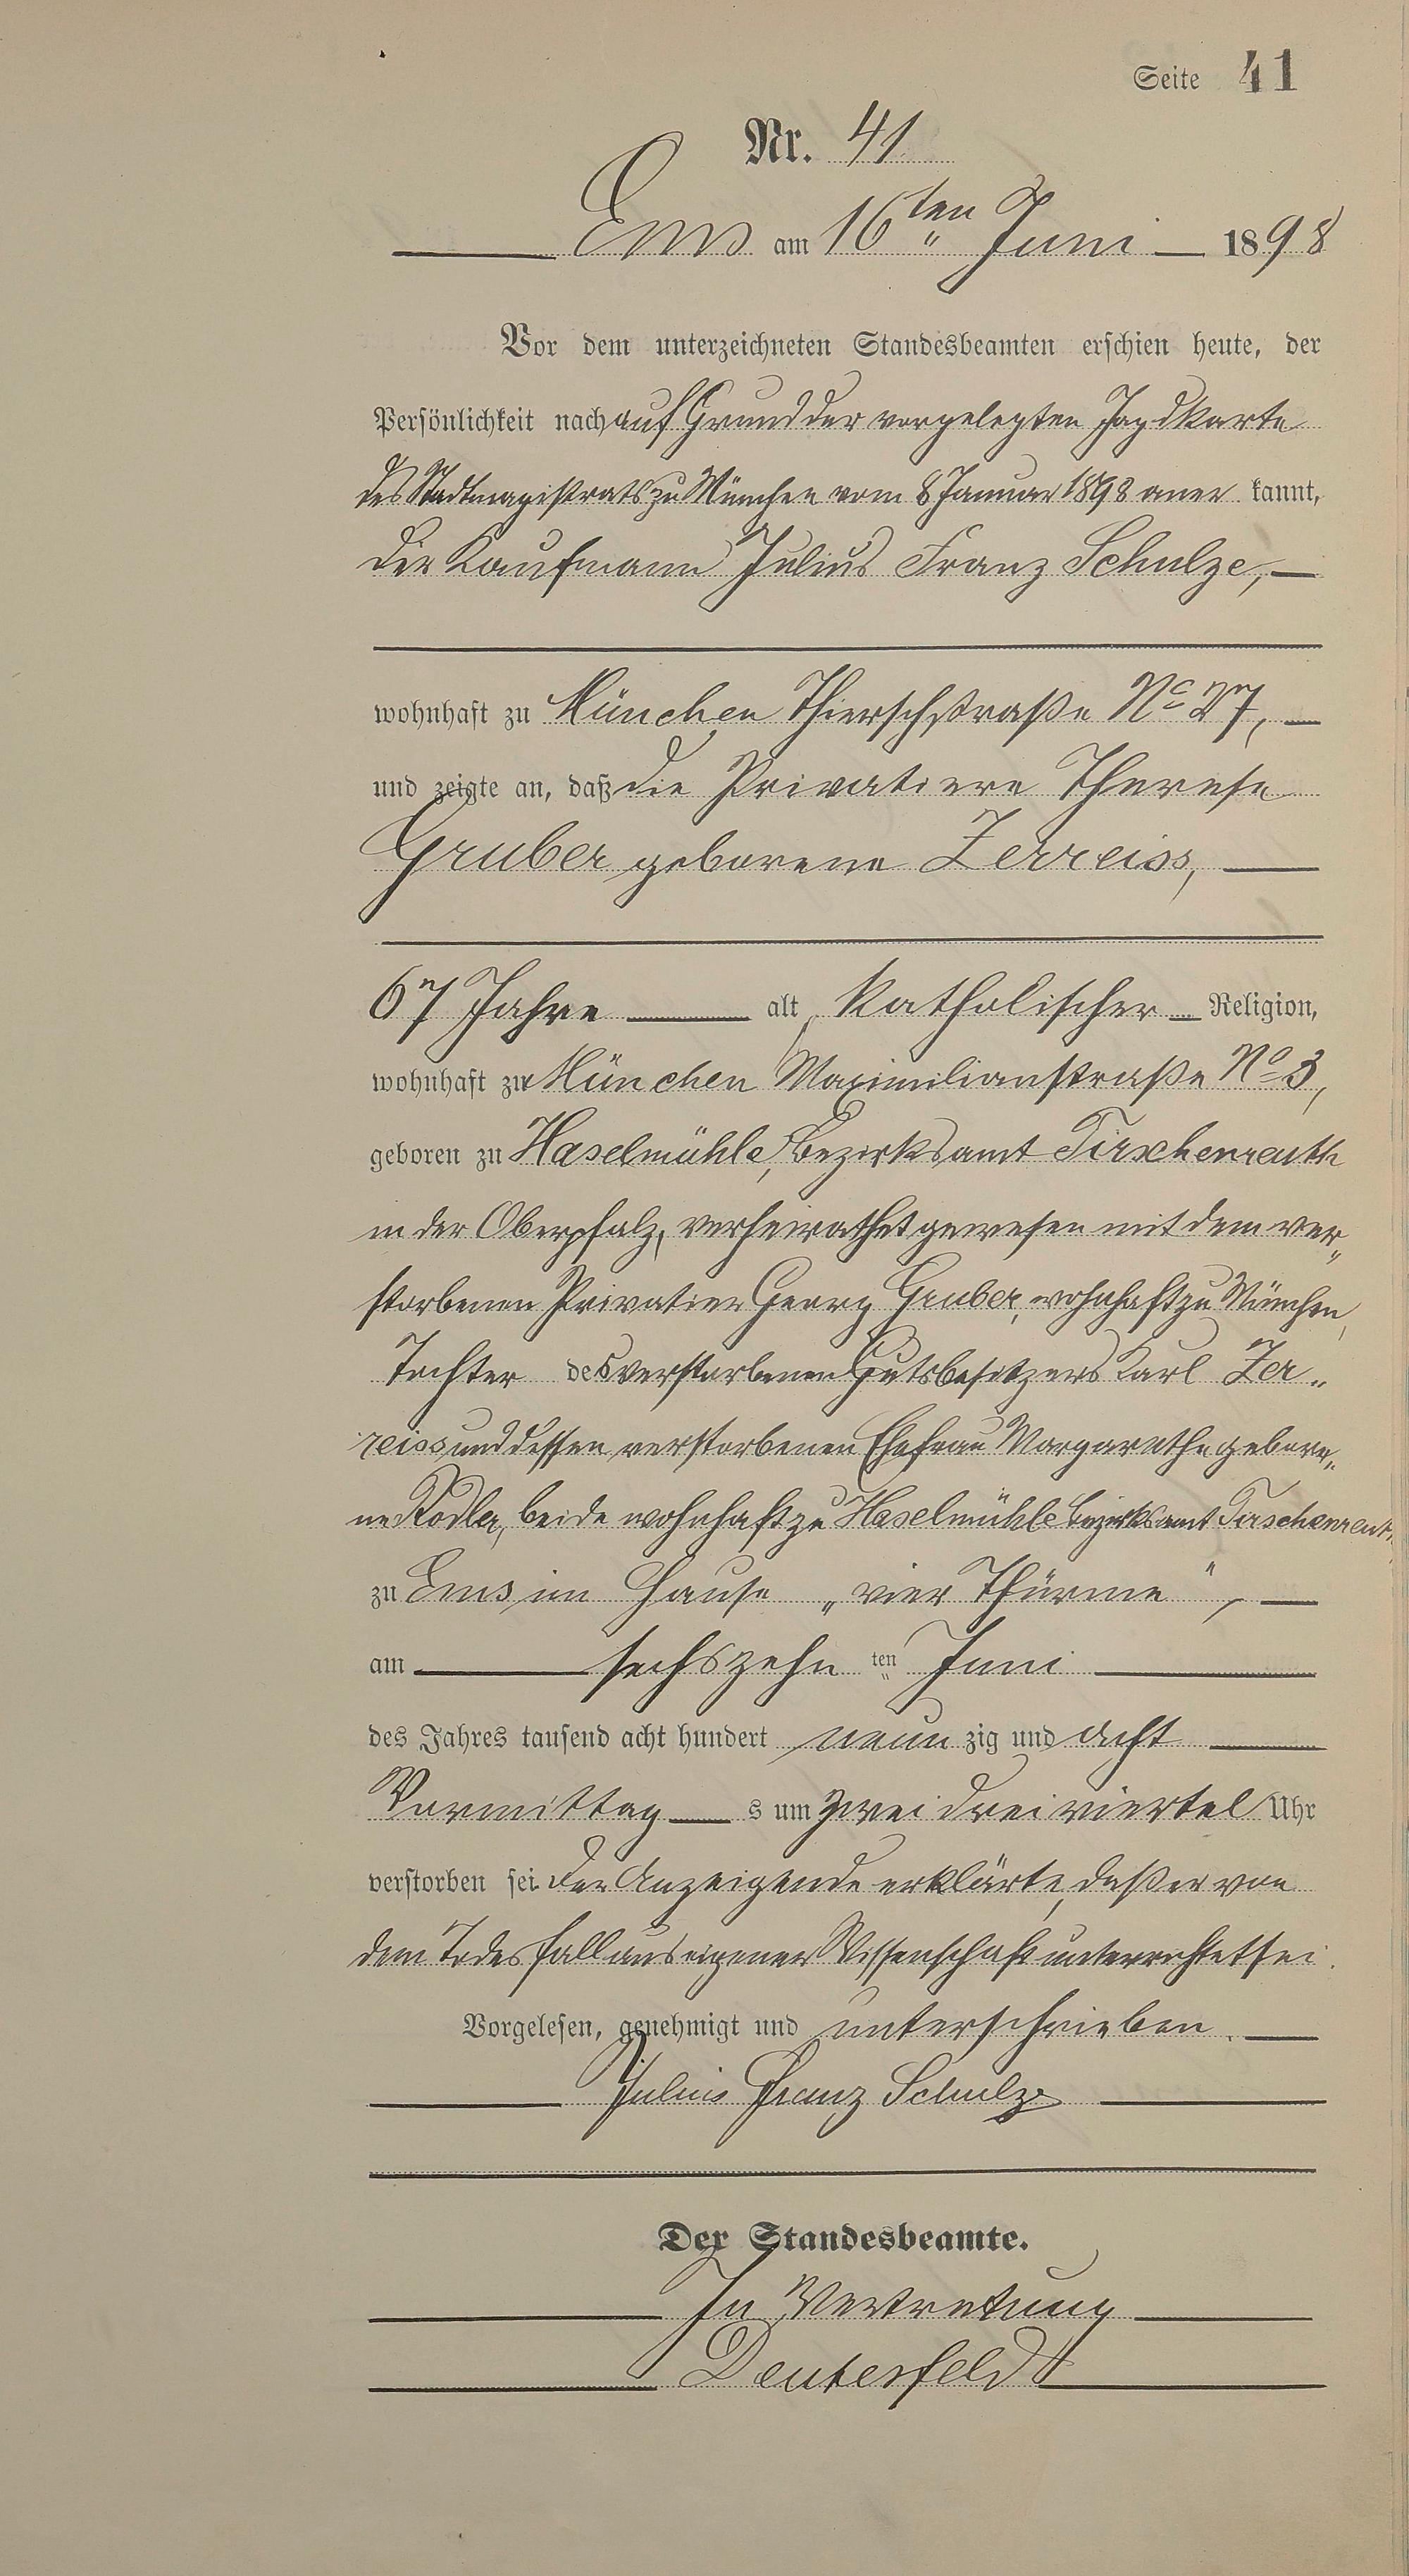 Seite 41
Nr. 41
Ems am 16ten Juni 1898
Vor dem unterzeichneten Standesbeamten erschien heute, der
Persönlichkeit nach auf Grund der vorgelegten Jagdkarte
des Stadtmagistrats zu München vom 8 Januar 1898 aner kannt,
der Kaufmann Julius Franz Schulze,
wohnhaft zu München Thierschstraße No 27,
und zeigte an, daß die Privatiere Therese
Gruber geborene Zerreiss,
67 Jahre alt, katholischer Religion,
wohnhaft zu München Maximilianstraße No 3,
geboren zu Haselmühle, Bezirksamt Tirschenreuth
in der Oberpfalz, verheirathet gewesen mit dem ver„
storbenen Privatier Georg Gruber, wohnhaft zu München,
Tochter des verstorbenen Gutsbesitzers Karl Zer„
reiss und dessen verstorbenen Ehefrau Margarethe gebore„
ne Rodler, beide wohnhaft zu Haselmühle Bezirksamt Tirschenreuth,
zu Ems im Hause „vier Thürme",
am sechszehn ten Juni
des Jahres tausend acht hundert neun zig und acht
Vormittag s um zwei dreiviertel Uhr
verstorben sei. Der Anzeigende erklärte, daß er von
dem Todesfall aus eigener Wissenschaft unterrichtet sei.
Vorgelesen, genehmigt und unterschrieben.
Julius Franz Schulze
Der Standesbeamte.
In Vertretung
Deutesfeld